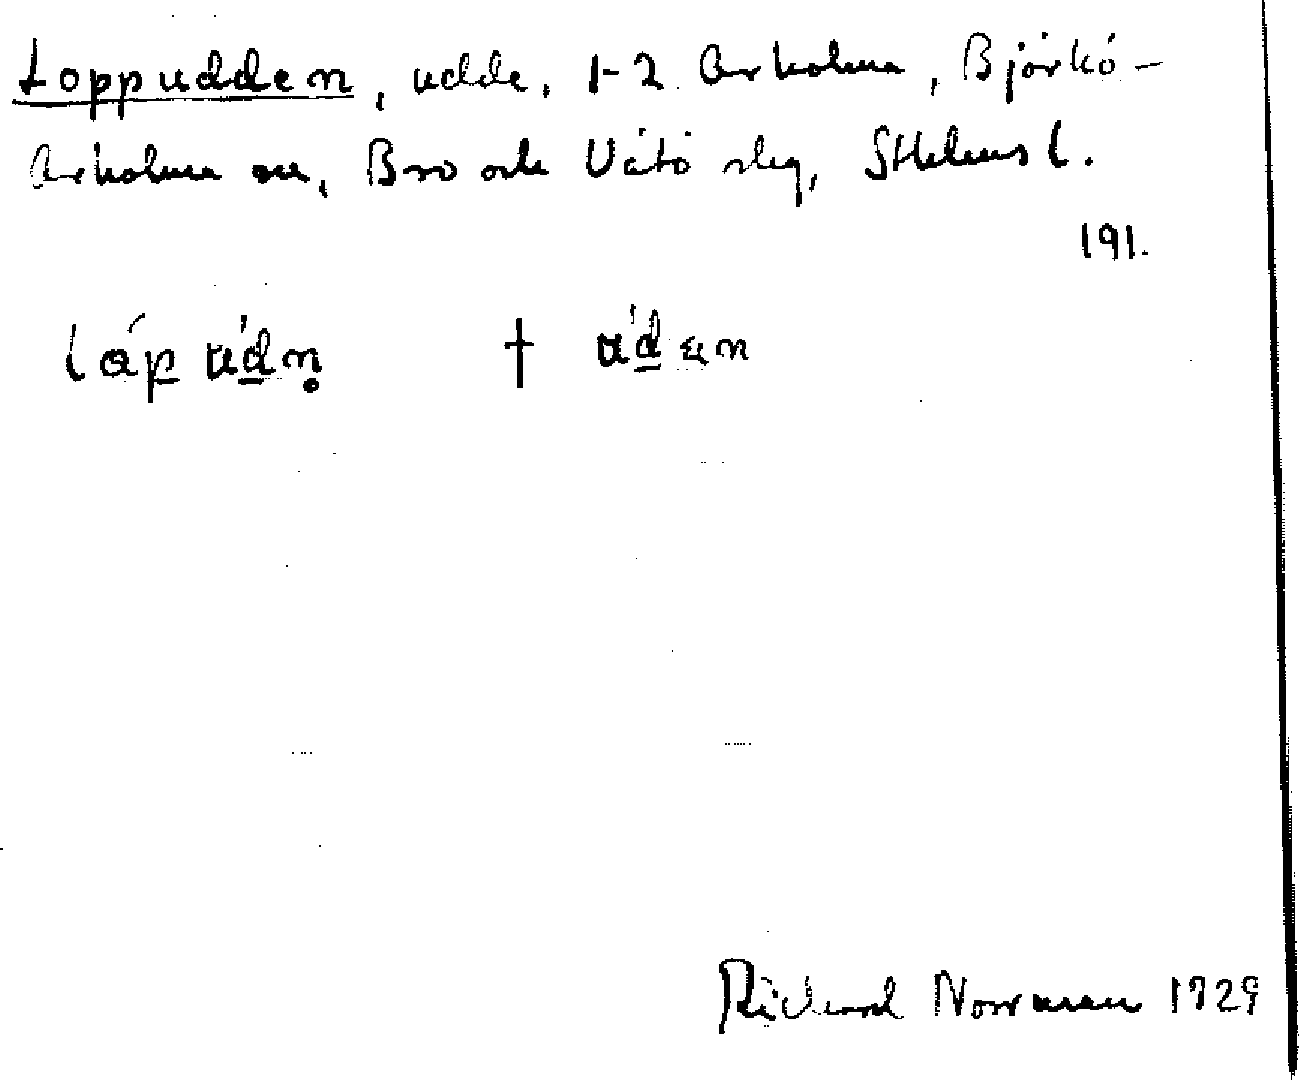 Loppudden, udde, 1-2 Arholma, Björkö-
Arholma sn, Bro och Vätö slg, Sthlms l.
191.
láp ud̲n̥ † ud̲ən
Richard Norrman 1929